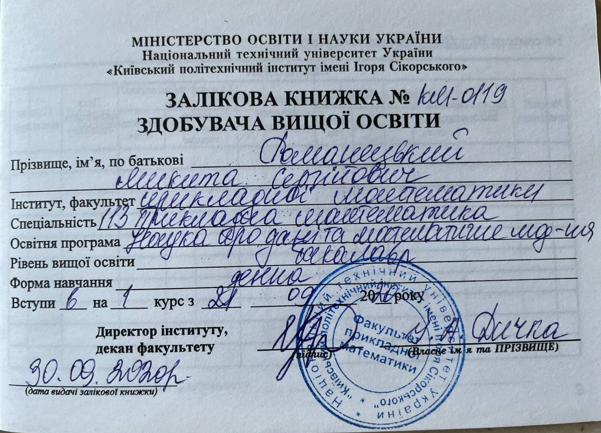 МІНІСТЕРСТВО ОСВІТИ І НАУКИ УКРАЇНИ
Національний технічний університет України
«Київський політехнічний інститут імені Ігоря Сікорського»
ЗАЛІКОВА КНИЖКА № КМ-0119
ЗДОБУВАЧА ВИЩОЇ ОСВІТИ
Прізвище, ім’я, по батькові Романецький
Микита Сергійович
Інститут, факультет прикладної математики
Спеціальність 113 Прикладна математика
Освітня програма Наука про дані та математичне мод-ня
Рівень вищої освіти бакалавр
Форма навчання денна
Вступив на 1 курс з 21 09 2020 року
Директор інституту,
декан факультету
(підпис)
І.А. Дичка
(Власне ім’я та ПРІЗВИЩЕ)
30.09.2020р.
(дата видачі залікової книжки)
Факультет
прикладної
математики